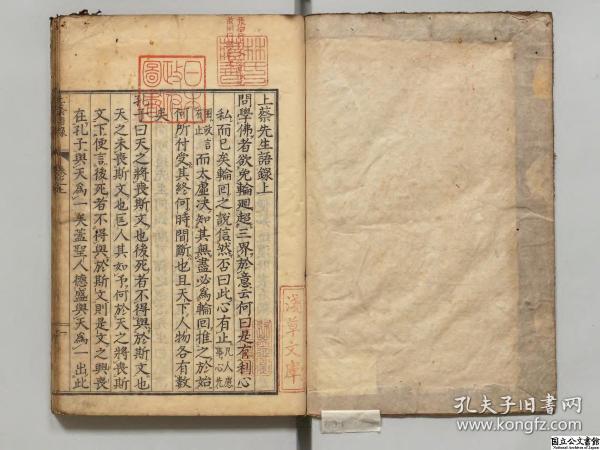 上蔡先生語錄上
問學佛者欲免輪廻超三界於意云何曰是有利心
私而已矣輪回之說信然否曰此心有止凡人應事心先
有止而太虛決知其無盡必為輪回推之於始
何所付受其終何時間斷也且天下人物各有數
矣
孔子曰天之將喪斯文也後死者不得與於斯文也
天之未喪斯文也匡人其如予何於天之將喪斯
文下便言後死者不得與於斯文則是文之興喪
在孔子與天為一矣蓋聖人德盛與天為一出此
日本
圖書
林氏
淺草文庫
孔夫子旧书网
www.kongfz.com
国立公文書館
National Archives of Japan